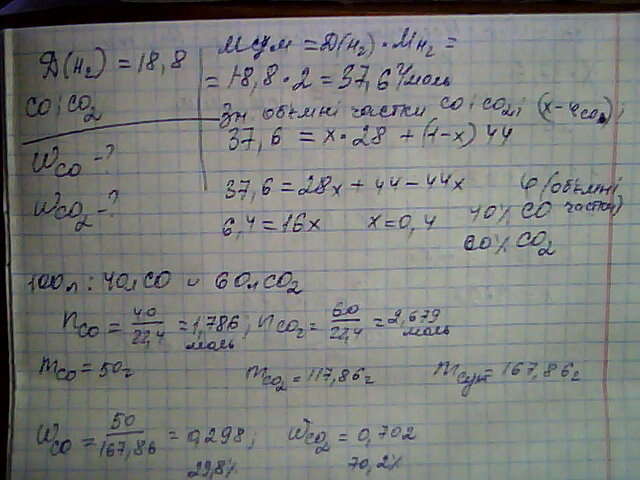 Д(H₂) = 18,8
CO; CO₂
W_CO - ?
W_CO₂ - ?
M сум = Д(H₂) · M_H₂ =
= 18,8 · 2 = 37,6 г/моль
Зн. об'ємні частки CO і CO₂; (x - φ_CO);
37,6 = x · 28 + (1-x) 44
37,6 = 28x + 44 - 44x
φ (об'ємні частки)
6,4 = 16x x = 0,4
40% CO
60% CO₂
100л : 40л CO и 60л CO₂
n_CO = 40/22,4 = 1,786 моль; n_CO₂ = 60/22,4 = 2,679 моль
m_CO = 50г m_CO₂ = 117,86г m_сум = 167,86г
W_CO = 50/167,86 = 0,298; W_CO₂ = 0,702
29,8% 70,2%